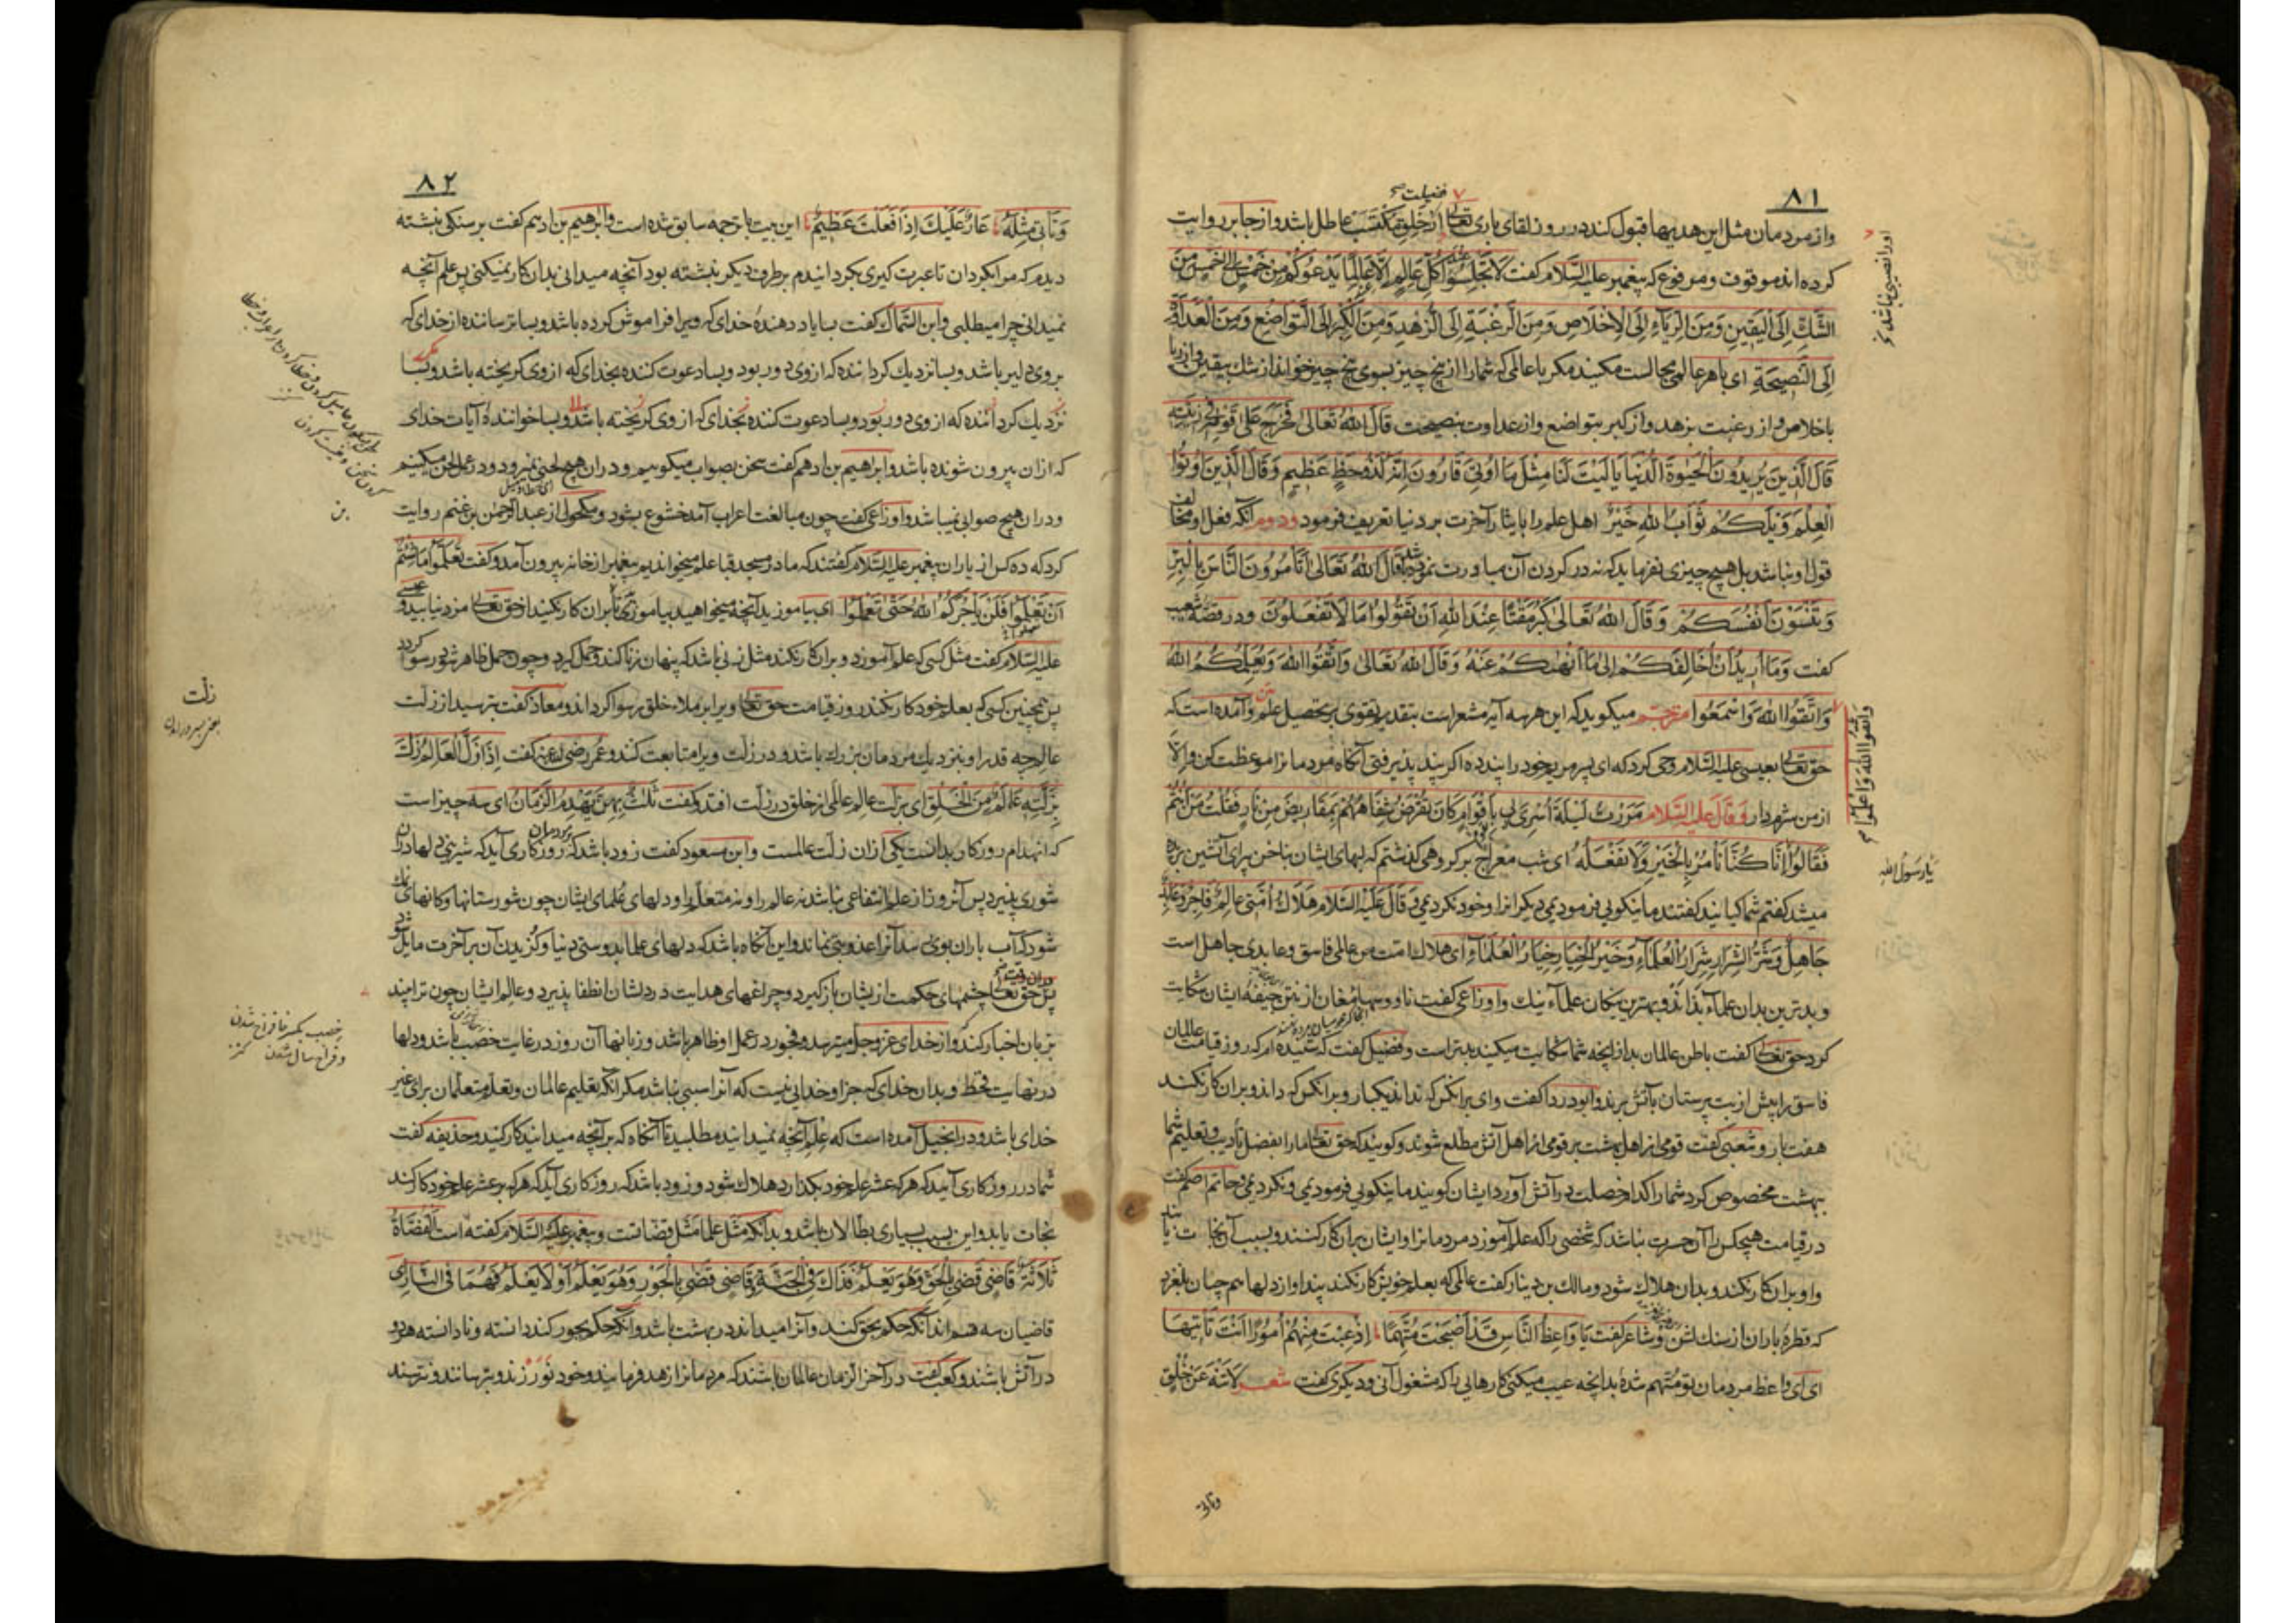 ۸۱
فضیلت
واز مردمان مثل این هدیها قبول کند در روز لقای باری تعالی از خلق مکتسب عاطل باشد واز جابر روایت
کرده اند موقوف ومرفوع که پیغمبر علیه السلام کفت لا تجلسوا عند کل عالم الا عالما یدعوکم من خمس الی خمس من
الشک الی الیقین ومن الریاء الی الاخلاص ومن الرغبة الی الزهد ومن الکبر الی التواضع ومن العداوة
الی النصیحة ای با هر عالمی مجالست مکنید مکر با عالمی که شما را از پنج چیز بسوی پنج چیز خواند از شک بیقین واز ریا
باخلاص واز رغبت بزهد واز کبر بتواضع واز عداوت بنصیحت قال الله تعالی فخرج علی قومه فی زینته
قال الذین یریدون الحیوة الدنیا یا لیت لنا مثل ما اوتی قارون انه لذو حظ عظیم وقال الذین اوتوا
العلم ویلکم ثواب الله خیر اهل علم را بایثار آخرت بر دنیا تعریف فرمود ودوم آنکه فعل او مخالف
قول او نباشد بل هیچ چیزی نفرماید که نه در کردن آن مبادرت نموده باشد قال الله تعالی اتامرون الناس بالبر
وتنسون انفسکم وقال الله تعالی کبر مقتا عند الله ان تقولوا ما لا تفعلون ودر قصه شعیب
کفت وما ارید ان اخالفکم الی ما انهیکم عنه وقال الله تعالی واتقوا الله ویعلمکم الله
واتقوا الله واسمعوا مترجم میکوید که این هر سه آیه مشعر است بتقدیم تقوی بر تحصیل علم وآمده است که
حق تعالی بعیسی علیه السلام وحی کرد که ای پسر مریم خود را پند ده اکر پند پذیرفتی آنکاه مردمانرا موعظت کن والا
از من شرم دار وقال علیه السلام مررت لیلة اسری بی باقوام کان تقرض شفاههم بمقاریض من نار فقلت من انتم
فقالوا انا کنا نامر بالخیر ولا نفعله ای شب معراج بر کروهی کذشتم که لبهای ایشان بناخن برای آتشین بریده
میشد کفتم شما کیانید کفتند ما بنکویی فرمودیمی دیکرانرا وخود نکردیمی وقال علیه السلام هلاک امتی عالم فاجر وعابد
جاهل وشر الشرار شرار العلماء وخیر الخیار خیار العلماء ای هلاک امت من عالمی فاسق وعابدی جاهل است
وبدترین بدان علماء بداند وبهترین نیکان علماء نیک واوزاعی کفت ناووسهاء مغان از نتن جیفه ایشان شکایت
کرد حق تعالی کفت باطن عالمان بد از انچه شما شکایت میکنید بدتر است وفضیل کفت که شنیده ام که روز قیامت عالمان
فاسق را پیش از بت پرستان بآتش برند وابودردا کفت وای بر انکس که نداند یکبار وبر انکس که داند وبران کار نکند
هفت بار وشعبی کفت قومی از اهل بهشت بر قومی از اهل آتش مطلع شوند وکویند که حق تعالی ما را بفضل تأدیب وتعلیم شما
ببهشت مخصوص کرد شما را کدام خصلت در آتش آورد ایشان کویند ما بنکویی فرمودیمی ونکردیمی وحاتم اصم کفت
در قیامت هیچکس را آن حسرت نباشد که شخصی را که علم آموزد مردمانرا وایشان بران کار کنند وبسبب آن نجات یابند
واو بران کار نکند وبدان هلاک شود ومالک بن دینار کفت عالمی که بعلم خویش کار نکند پند او از دلها هم چنان بلغزد
که قطره باران از سنک لشن وشاعر کفت یا واعظ الناس قد اصبحت متهما اذ عبت منهم امورا انت تاتیها
ای ای واعظ مردمان تو متهم شدهٔ بدانچه عیب میکنی کارهایی را که مشغول آنی ودیکری کفت شعر لا تنه عن خلق
وتاتی
او را نصیبی نباشد
واتقوا الله واعلموا
یا رسول الله
۸۲
وتاتی مثله عار علیک اذا فعلت عظیم این بیت با ترجمه سابق شده است وابرهیم بن ادهم کفت بر سنکی نبشته
دیدم که مرا بکردان تا عبرت کیری بکردانیدم بر طرف دیکر نبشته بود آنچه میدانی بدان کار نمیکنی پس علم آنچه
نمیدانی چرا میطلبی وابن السماک کفت بسا یاد دهندهٔ خدای که ویرا فراموش کرده باشد وبسا ترساننده از خدای که
بر وی دلیر باشد وبسا نزدیک کرداننده که از وی دور بود وبسا دعوت کننده بخدای که از وی کریخته باشد وبسا
نزدیک کرداننده که از وی دور بود وبسا دعوت کننده بخدای که از وی کریخته باشد وبسا خوانندهٔ آیات خدای
که ازان بیرون شونده باشد وابراهیم بن ادهم کفت سخن بصواب میکوییم ودران هیچ لحنی نمیرود ودر عمل لحن میکنیم
ودران هیچ صوابی نمیباشد واوزاعی کفت چون مبالغت اعراب آمد خشوع بشود ومکحول از عبد الرحمن بن غنم روایت
کرد که ده کس از یاران پیغمبر علیه السلام کفتند که ما در مسجد قبا علم میخواندیم پیغمبر از خانه بیرون آمد وکفت تعلموا ما شئتم
ان تعلموا فلن یاجرکم الله حتی تعملوا ای بیاموزید آنچه میخواهید بیاموزید تا بران کار نکنید از حق تعالی مزد نیابید وعیسی
علیه السلام کفت مثل کسی که علم آموزد وبران کار نکند مثل زنی باشد که پنهان زنا کند وحمل کیرد وچون حمل ظاهر شود رسوا کردد
پس همچنین کسی که بعلم خود کار نکند روز قیامت حق تعالی ویرا بر ملاء خلق رسوا کرداند ومعاذ کفت بترسید از زلت
عالم چه قدر او بنزدیک مردمان بزرک باشد ودر زلت ویرا متابعت کنند وعمر رضی الله عنه کفت اذا زل العالم زلت
بزلته عالم من الخلق ای بزلت عالم عالمی از خلق در زلت افتد وکفت ثلث بهن یهدم الزمان ای سه چیز است
که انهدام روزکار بدانست یکی ازان زلت عالمست وابن مسعود کفت زود باشد که بر مردمان روزکاری آید که شیرینی دلها دران
شوری پذیرد پس آنروز از علم انتفاعی نباشد نه عالم را ونه متعلم را ودلهای علمای ایشان چون شورستانها وکانهای نمک
شود که آب باران بوی رسد آنرا عذوبتی نماند واین آنکاه باشد که دلهای علما بدوستی دنیا وکزیدن آن بر آخرت مایل شود
پس حق تعالی چشمهای حکمت ازیشان باز کیرد وچراغهای هدایت در دلشان انطفا پذیرد وعالم ایشان چون ترا بیند
بزبان اخبار کند واز خدای عز وجل میترسد وفجور در عمل او ظاهر باشد وزبانها آن روز در غایت خصب باشد ودلها
در نهایت قحط وبدان خدای که جز او خدایی نیست که آنرا سببی نباشد مکر آنکه تعلیم عالمان وتعلم متعلمان برای غیر
خدای باشد ودر انجیل آمده است که علم آنچه نمیدانید مطلبید تا آنکاه که بر آنچه میدانید کار کنید وحذیفه کفت
شما در روزکاری آیید که هر که عشر علم خود بکذارد هلاک شود وزود باشد که روزکاری آید که هر که بر عشر علم خود کار کند
نجات یابد واین بسبب بسیاری بطالان باشد وبدانکه مثل علما مثل قضاتست وپیغمبر علیه السلام کفته است القضاة
ثلاثة قاضی قضی بالحق وهو یعلم فذاک فی الجنة وقاضی قضی بالجور وهو یعلم او لا یعلم فهما فی النار ای
قاضیان سه قسم اند آنکه حکم بحق کند وآنرا میداند در بهشت باشد وآنکه حکم بجور کند دانسته ونادانسته هر دو
در آتش باشند وکعب کفت در آخر الزمان عالمان باشند که مردمانرا زهد فرمایند وخود نورزند وبترسانند ونترسند
زلت
خصب بکسر خا فراخ شدن
وفراخ سال شدن کنز